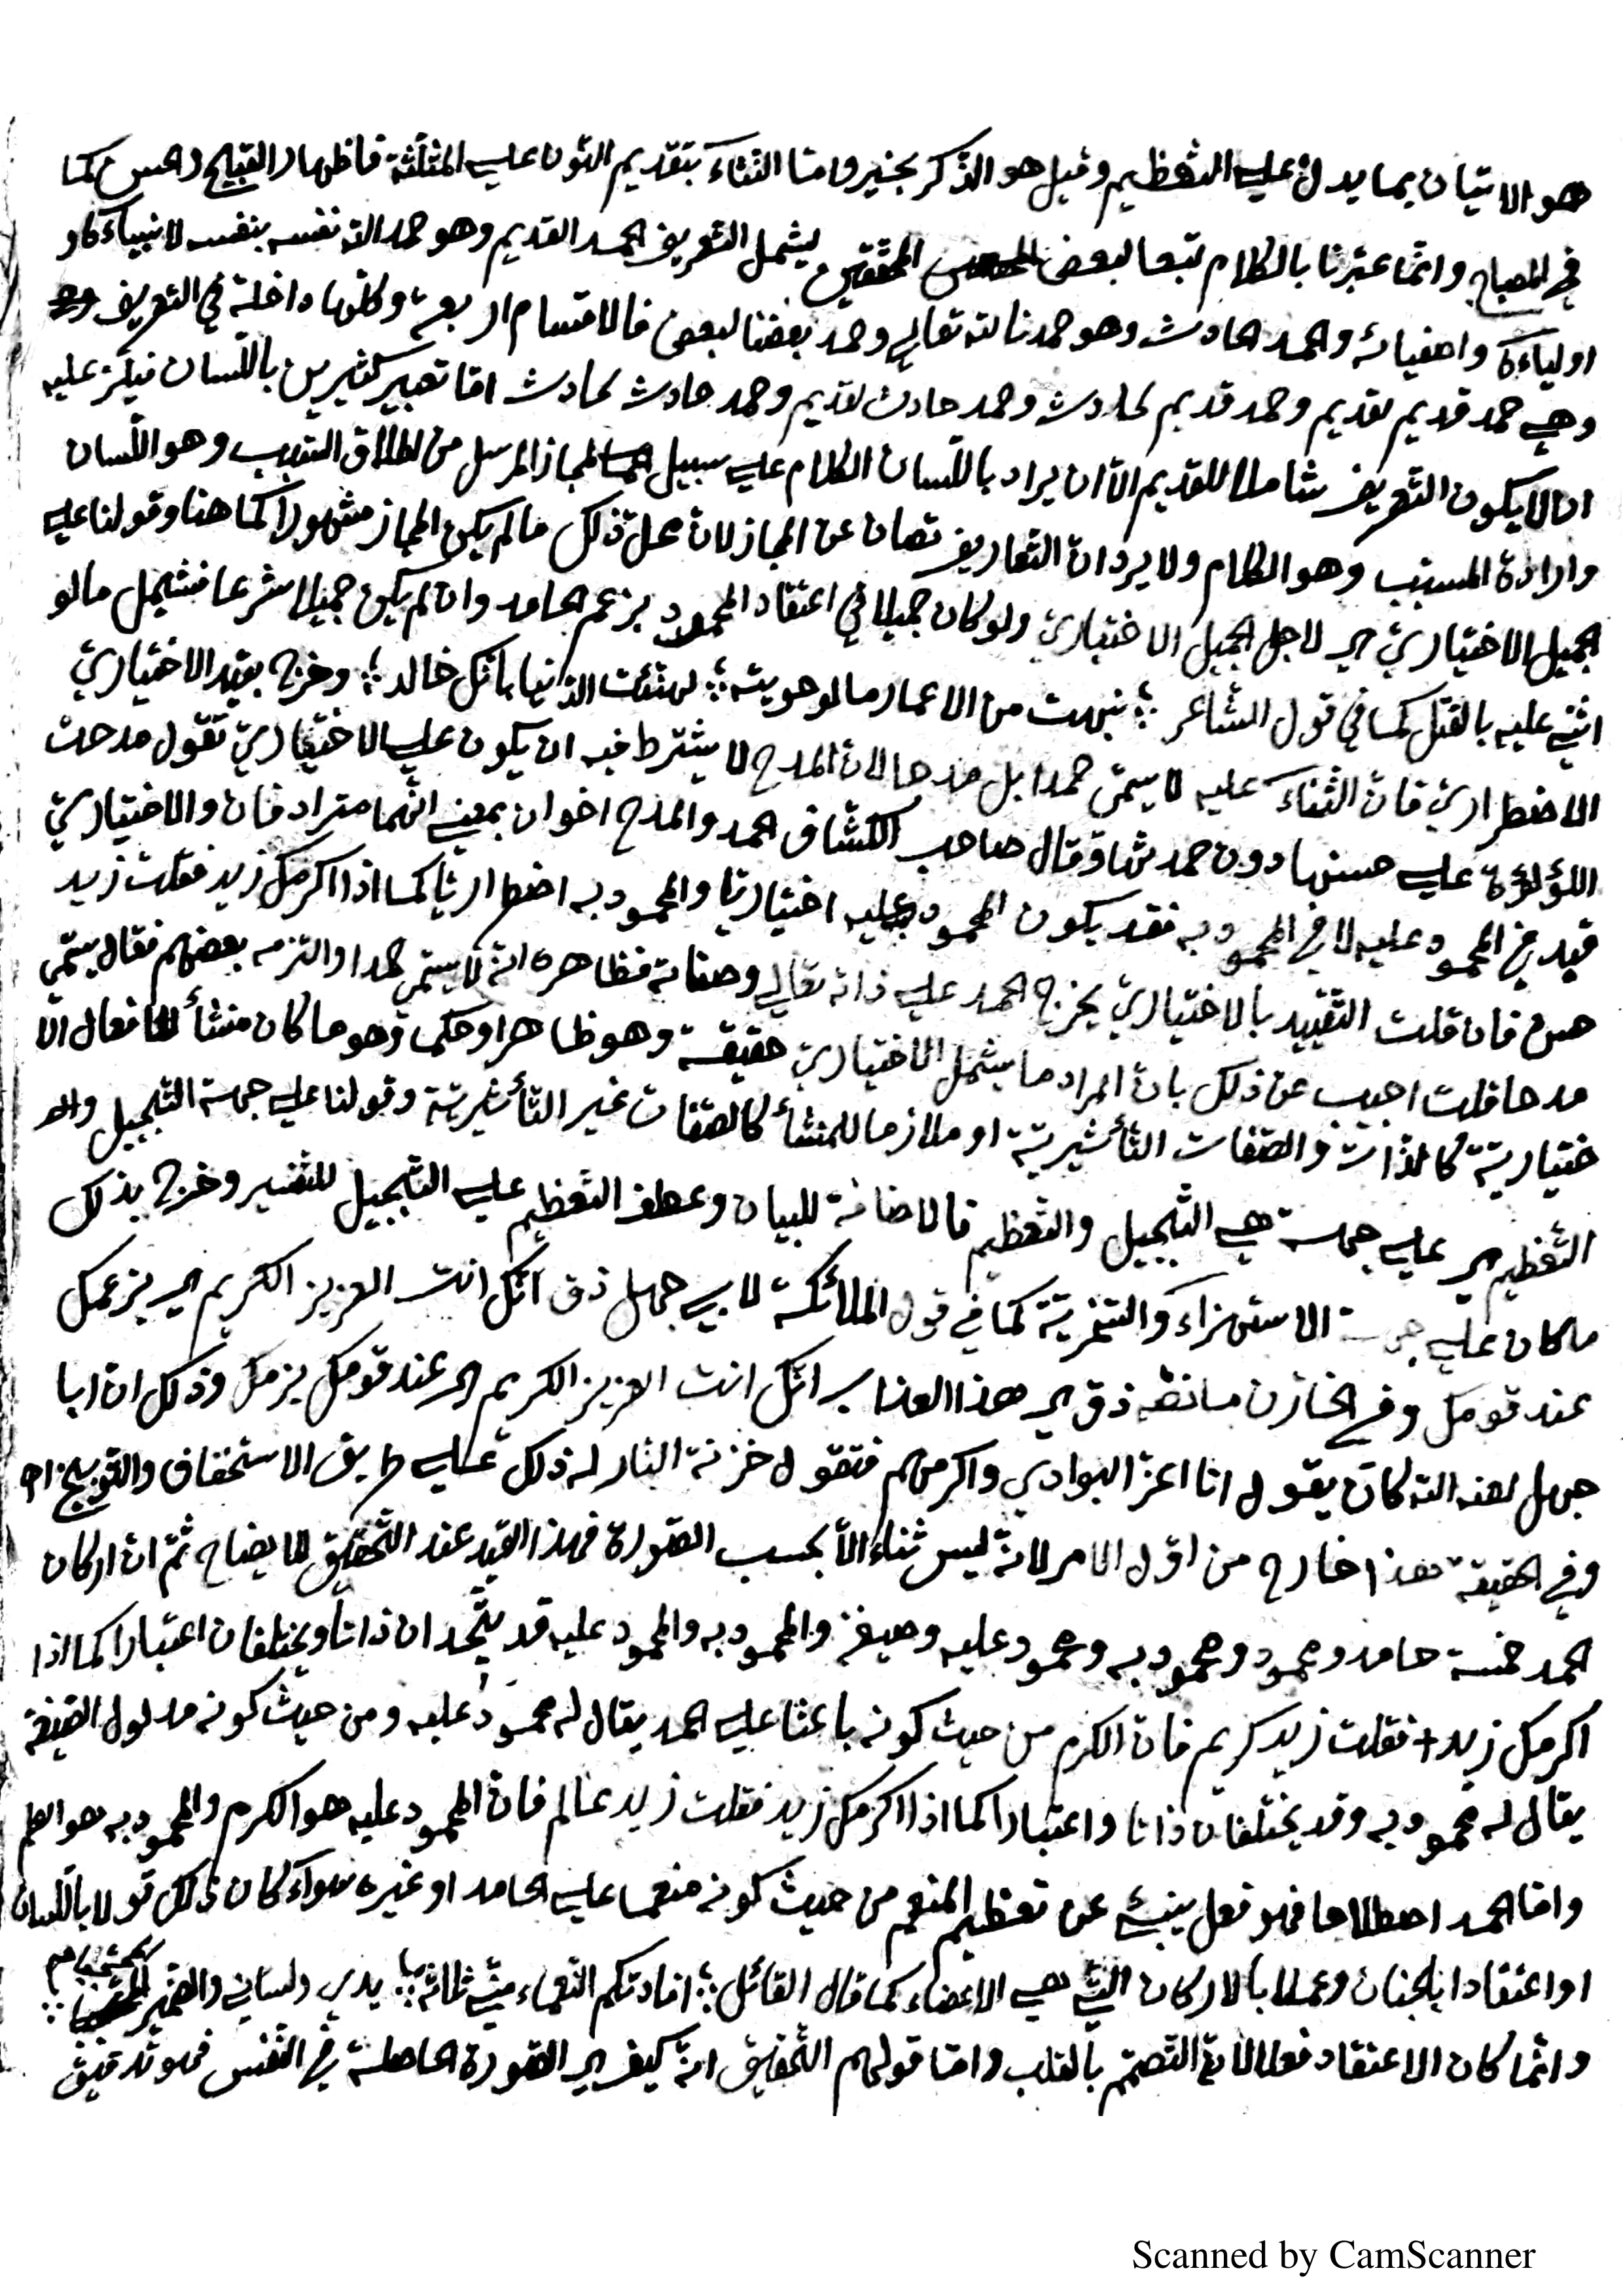 هو الاتيان بما يدل على التعظيم وقيل هو الذكر بخير وامّا النثاء بتقديم النون على المثلثة فاظهار القبايح كما
في المصباح وانّما عبّرنا بالكلام تبعا لبعض المحققين ليشمل التعريف الحمد القديم وهو حمد الله نفسه بنفسه لانبياءه او
اولياءه واصفيائه والحمد الحادث وهو حمدنا لله تعالى وحمد بعضنا لبعض فالاقسام اربعة وكلّها داخلة في التعريف
وهي حمد قديم لقديم وحمد قديم لحادث وحمد حادث لقديم وحمد حادث لحادث امّا تعبير كثيرين باللّسان فيلزم عليه
ان لا يكون التعريف شاملا للقديم الّا ان يراد باللّسان الكلام على سبيل المجاز المرسل من اطلاق السّبب وهو اللّسان
وارادة المسبّب وهو الكلام ولا يرد انّ التعاريف تصان عن المجاز لانّ محلّ ذلك ما لم يكن المجاز مشهوراً كما هنا وقولنا على
الجميل الاختياريّ اي لاجل الجميل الاختياريّ ولو كان جميلا في اعتقاد المحمود بزعم الحامد وان لم يكن جميلا شرعا فشمل مالو
اثنى عليه بالقتل كما في قول الشّاعر ؛ نهبت من الاعمار مالو حويته ؛ لهنّئت الدّنيا بانّك خالد ؛ وخرج بقيد الاختياريّ
الاضطراريّ فانّ الثّناء عليه لا يسمّى حمدا بل مدحا لانّ المدح لا يشترط فيه ان يكون على الاختياريّ تقول مدحت
اللؤلؤة على حسنها دون حمدتها وقال صاحب الكشّاف الحمد والمدح اخوان بمعنى انّهما مترادفان والاختياريّ
قيد في المحمود عليه لا في المحمود به فقد يكون المحمود عليه اختياريّا والمحمود به اضطراريّا كما اذا اكرمك زيد فقلت زيد
حسن فان قلت التّقييد بالاختياريّ يخرج الحمد على ذاته تعالى وصفاته فظاهره انّه لا يسمّى حمدا والتزمه بعضهم فقال يسمّى
مدحا قلت اجيب عن ذلك بانّ المراد ما يشمل الاختياريّ حقيقة وهو ظاهر او حكما وهو ما كان منشأ لافعال الا
ختياريّة كالذّات والصّفات التّأثيريّة او ملازما للمنشأ كالصّفات غير التّأثيريّة وقولنا على جهة التّبجيل و
التّعظيم اي على جهة هي التّبجيل والتّعظيم فالاضافة للبيان وعطف التّعظيم على التّبجيل للتّفسير وخرج بذلك
ما كان على جهة الاستهزاء والسّخريّة كما في قول الملائكة لابي جهل ذق انّك انت العزيز الكريم اي بزعمك
عند قومك وفي الخازن ما نصّه ذق اي هذا العذاب انّك انت العزيز الكريم اي عند قومك بزعمك وذلك انّ ابا
جهل لعنه الله كان يقول انا اعزّ البوادي واكرمهم فتقول خزنة النّار له ذلك على طريق الاستخفاف والتّوبيخ اه
وفي الحقيقة هذا خارج من اوّل الامر لانّه ليس ثناء الّا بحسب الصّورة فهذا القيد عند التّحقيق للايضاح ثمّ انّ اركان
الحمد خمسة حامد ومحمود ومحمود به ومحمود عليه وصيغة والمحمود به والمحمود عليه قد يتّحدان ذاتا ويختلفان اعتبارا كما اذا
اكرمك زيد فقلت زيد كريم فانّ الكرم من حيث كونه باعثا على الحمد يقال له محمود عليه ومن حيث كونه مدلول الصّيغة
يقال له محمود به وقد يختلفان ذاتا واعتبارا كما اذا اكرمك زيد فقلت زيد عالم فانّ المحمود عليه هو الكرم والمحمود به هو العلم
وامّا الحمد اصطلاحا فهو فعل ينبئ عن تعظيم المنعم من حيث كونه منعما على الحامد او غيره سواء كان ذلك قولا باللّسان
او اعتقادا بالجنان وعملا بالاركان الّتي هي الاعضاء كما قال القائل ؛ افادتكم النّعماء منّي ثلاثة ؛ يدي ولساني والضّمير المحجّبا ؛
وانّما كان الاعتقاد فعلا لانّه التّصمّم بالقلب وامّا قولهم التّحقيق انّه كيف اي الصّورة الحاصلة في النّفس فهو تدقيق
Scanned by CamScanner